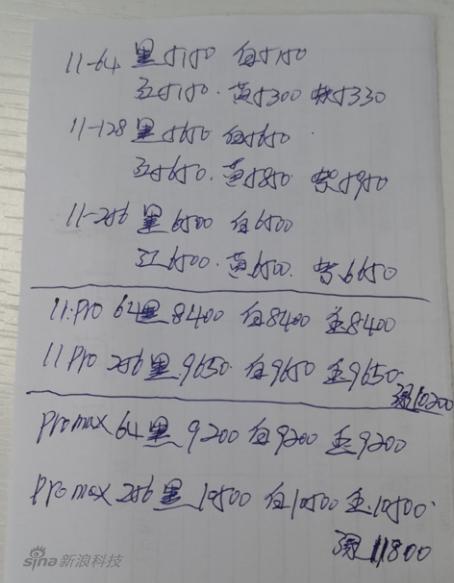 11-64 黑5150 白5150
红5150. 黄5300 紫5330
11-128 黑5650 白5650
红5650. 黄5850 紫5950
11-256 黑6500 白6500
红6500. 黄6500. 紫6650
11Pro 64黑8400 白8400 金8400
11Pro 256黑.9650 白9650 金9650.
绿10200
Promax 64黑9200 白9200 金9200
Promax 256黑10500 白10500 金.10500.
绿11800
sina新浪科技